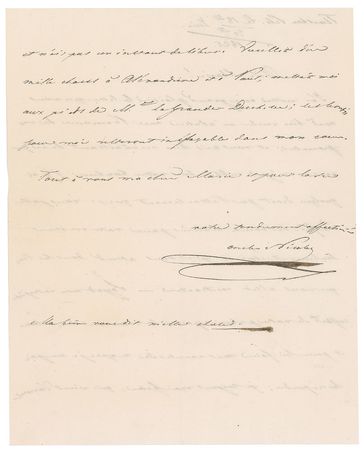 et n'ai pas un instant de libre. Veuillez dire
mille choses à Alexandrine et Paul; mettez moi
aux pieds de M^me la Grande Duchesse; ses bontés
pour moi resteront ineffaçables dans mon cœur.
Tout à vous ma chère Marie et pour la vie
votre tendrement affectionné
oncle Nicolas
Ma sœur vous dit milles choses